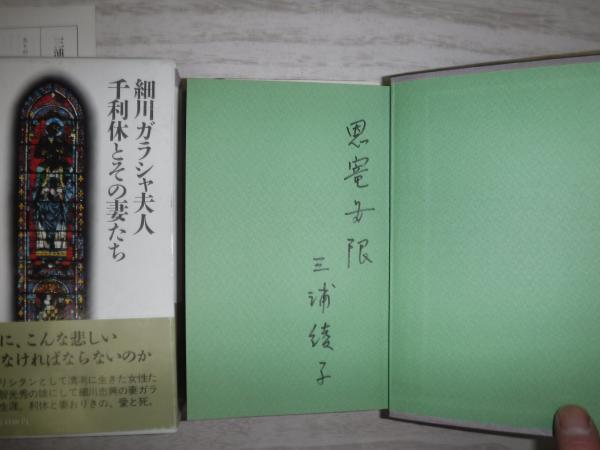 三浦
細川ガラシャ夫人
千利休とその妻たち
に、こんな悲しい
なければならないのか
リシタンとして清冽に生きた女性た
智光秀の娘にして細川忠興の妻ガラ
生涯、利休と妻おりきの、愛と死。
恩寵無限
三浦綾子